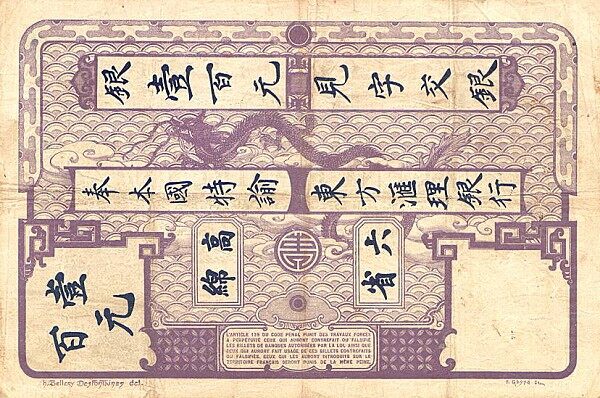 銀壹百元
見字交銀
奉本國特諭
東方滙理銀行
高綿
六省
壹百元
L'ARTICLE 139 DU CODE PENAL PUNIT DES TRAVAUX FORCÉS
A PERPÉTUITÉ CEUX QUI AURONT CONTREFAIT OU FALSIFIÉ
LES BILLETS DE BANQUES AUTORISÉES PAR LA LOI, AINSI QUE
CEUX QUI AURONT FAIT USAGE DE CES BILLETS CONTREFAITS
OU FALSIFIÉS. CEUX QUI LES AURONT INTRODUITS SUR LE
TERRITOIRE FRANÇAIS SERONT PUNIS DE LA MÊME PEINE.
h. Bellery Desfontaines del.